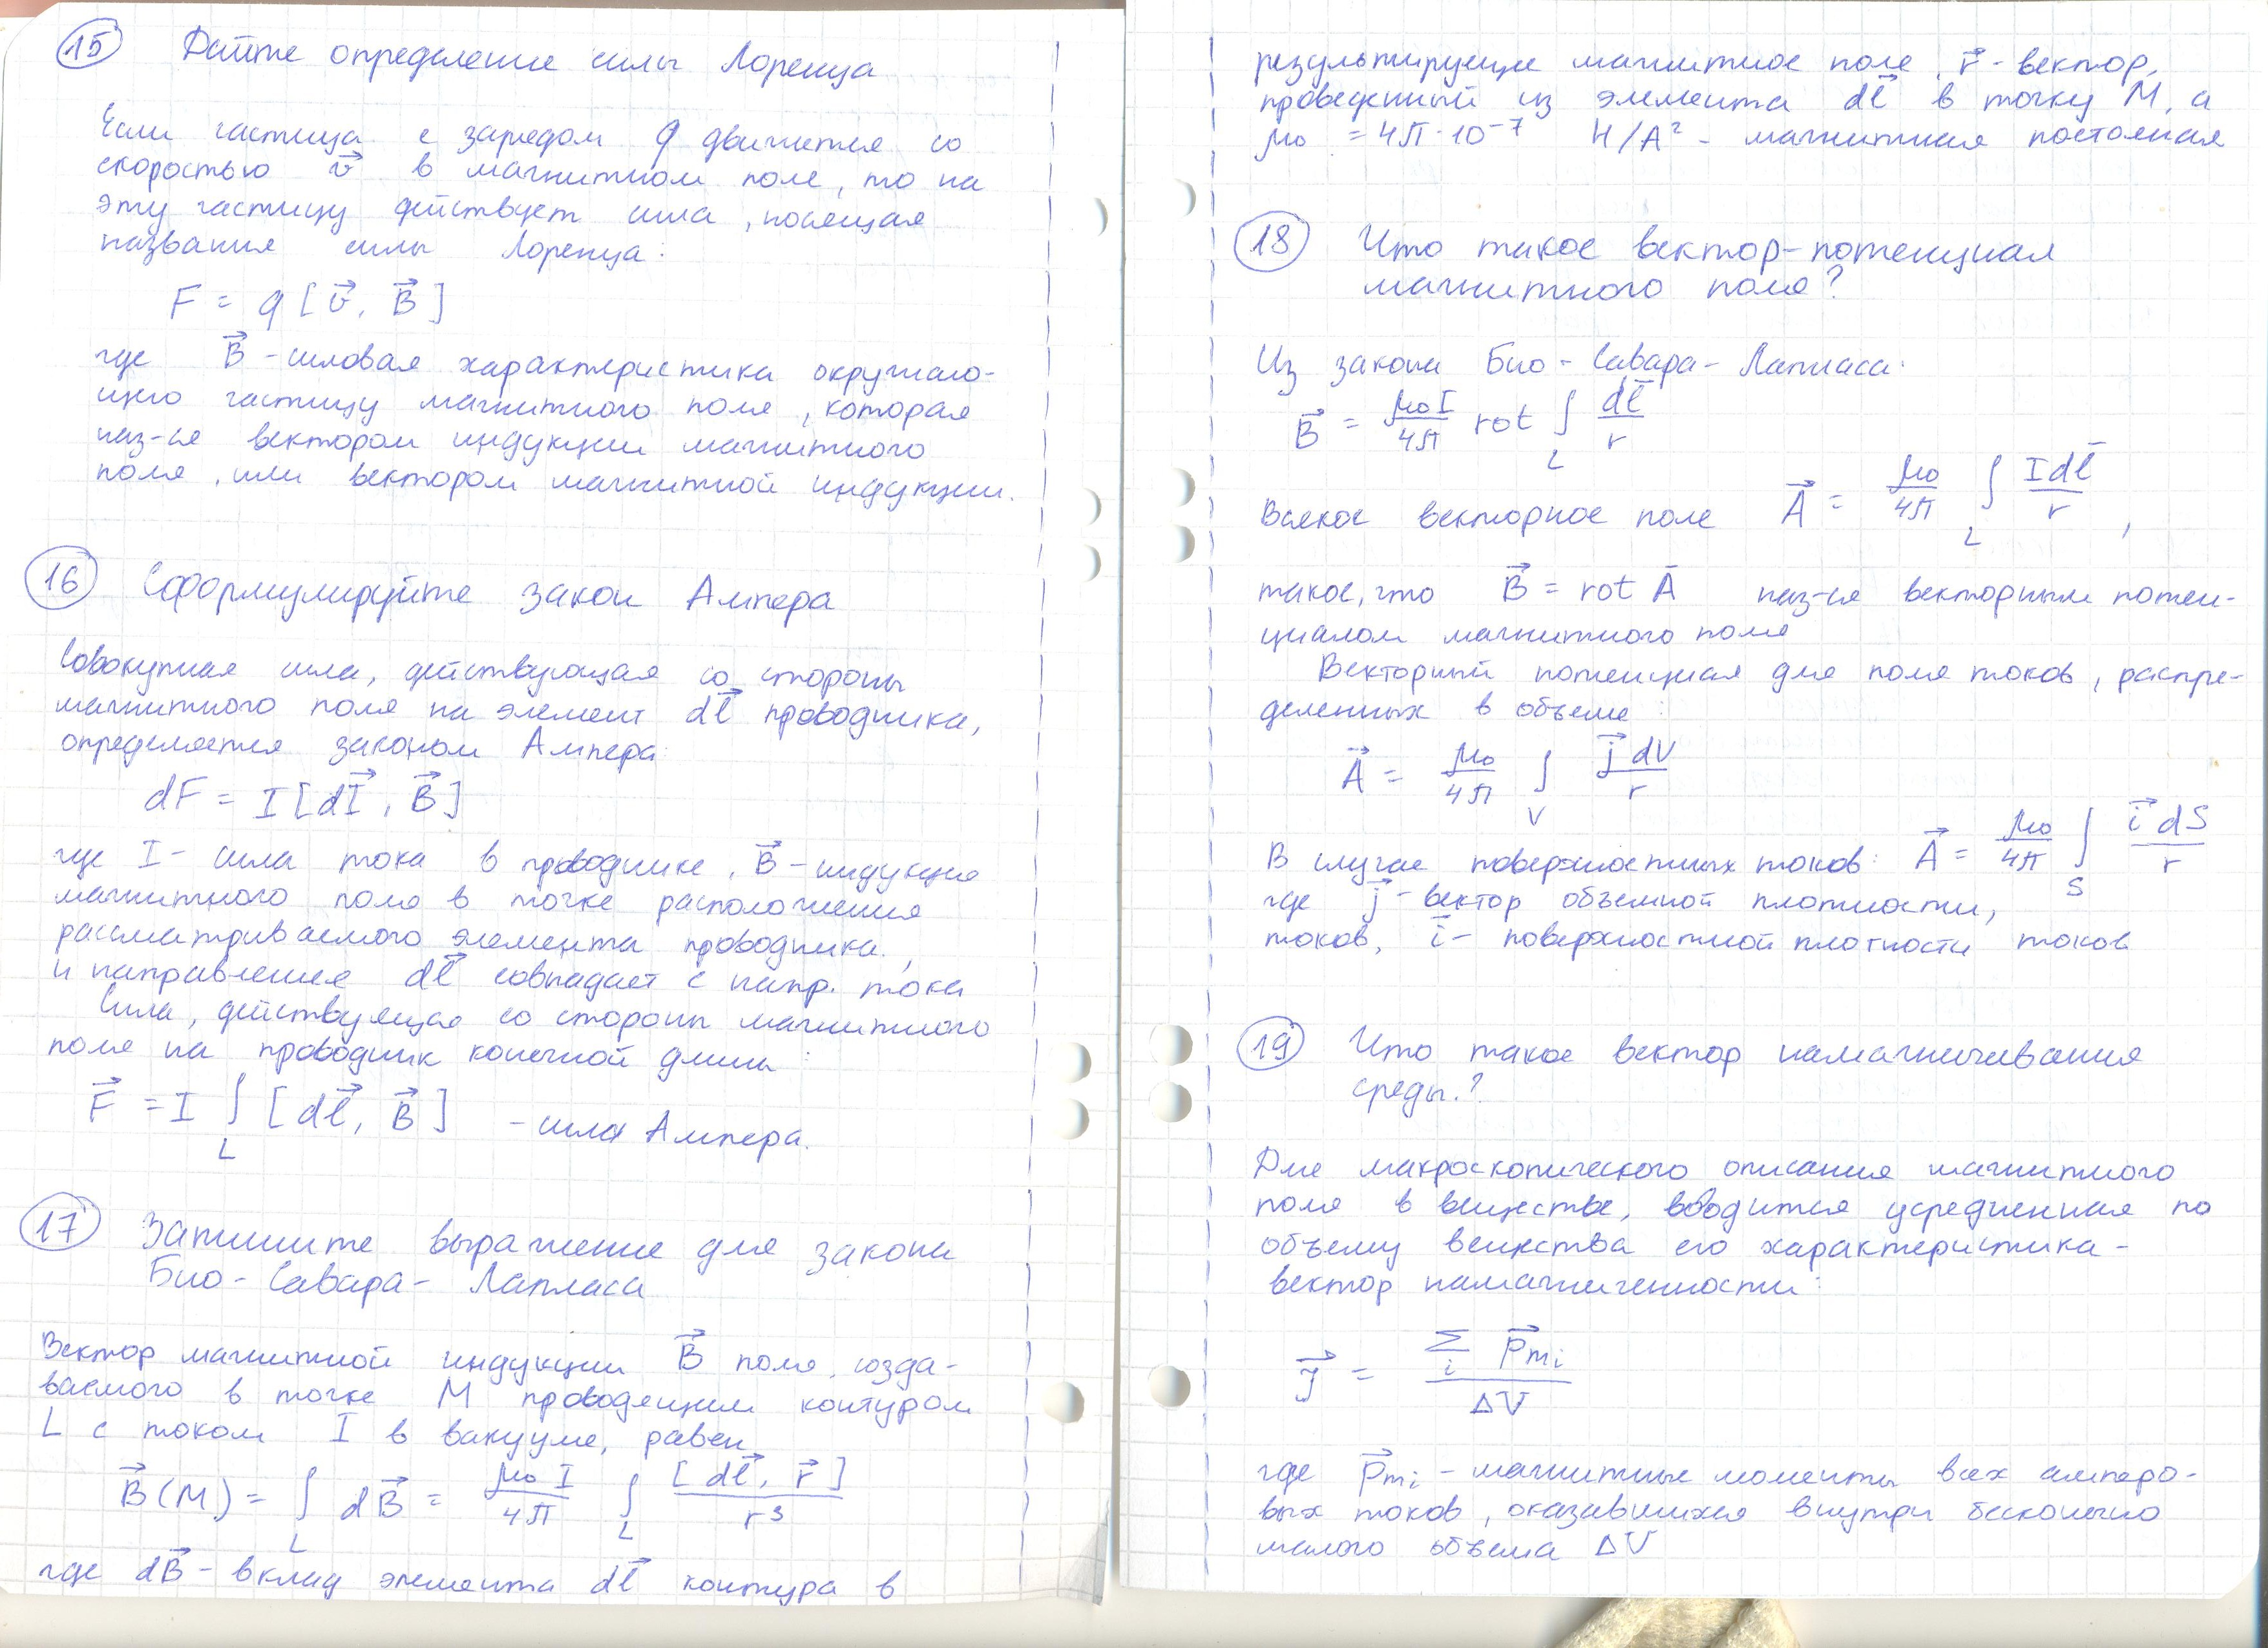 15 Дайте определение силы Лоренца
Если частица с зарядом q движется со
скоростью v⃗ в магнитном поле, то на
эту частицу действует сила, носящая
название силы Лоренца:
F = q [v⃗, B⃗]
где B⃗ - силовая характеристика окружаю-
щего частицу магнитного поля, которая
наз-ся вектором индукции магнитного
поля, или вектором магнитной индукции.
16 Сформулируйте закон Ампера
Совокупная сила, действующая со стороны
магнитного поля на элемент dl⃗ проводника,
определяется законом Ампера:
dF = I [dI⃗, B⃗]
где I - сила тока в проводнике, B⃗ - индукция
магнитного поля в точке расположения
рассматриваемого элемента проводника,
и направление dl⃗ совпадает с напр. тока
Сила, действующая со стороны магнитного
поля на проводник конечной длины:
F⃗ = I ∫_L [dl⃗, B⃗] - сила Ампера.
17 Запишите выражение для закона
Био-Савара-Лапласа
Вектор магнитной индукции B⃗ поля, созда-
ваемого в точке M проводящим контуром
L с током I в вакууме, равен
B⃗(M) = ∫_L dB⃗ = μ₀I/4π ∫_L [dl⃗, r⃗]/r³
где dB⃗ - вклад элемента dl⃗ контура в
результирующее магнитное поле, r⃗ - вектор,
проведенный из элемента dl⃗ в точку M, а
μ₀ = 4π·10⁻⁷ Н/А² - магнитная постояная
18 Что такое вектор-потенциал
магнитного поля?
Из закона Био-Савара-Лапласа:
B⃗ = μ₀I/4π rot ∫_L dl̄/r
Всякое векторное поле A⃗ = μ₀/4π ∫_L Idl̄/r,
такое, что B⃗ = rot Ā наз-ся векторным потен-
циалом магнитного поля
Векторный потенциал для поля токов, распре-
деленных в объеме:
A⃗ = μ₀/4π ∫_V j⃗ dV/r
В случае поверхностных токов: A⃗ = μ₀/4π ∫_S i⃗ dS/r
где j⃗ - вектор объемной плотности,
токов, i⃗ - поверхностной плотности токов
19 Что такое вектор намагничивания
среды.?
Для макроскопического описания магнитного
поля в веществе, вводится усредненная по
объему вещества его характеристика -
вектор намагниченности:
J⃗ = ∑_i P⃗mi / ΔV
где P⃗mi - магнитные моменты всех амперо-
вых токов, оказавшихся внутри бесконечно
малого объема ΔV